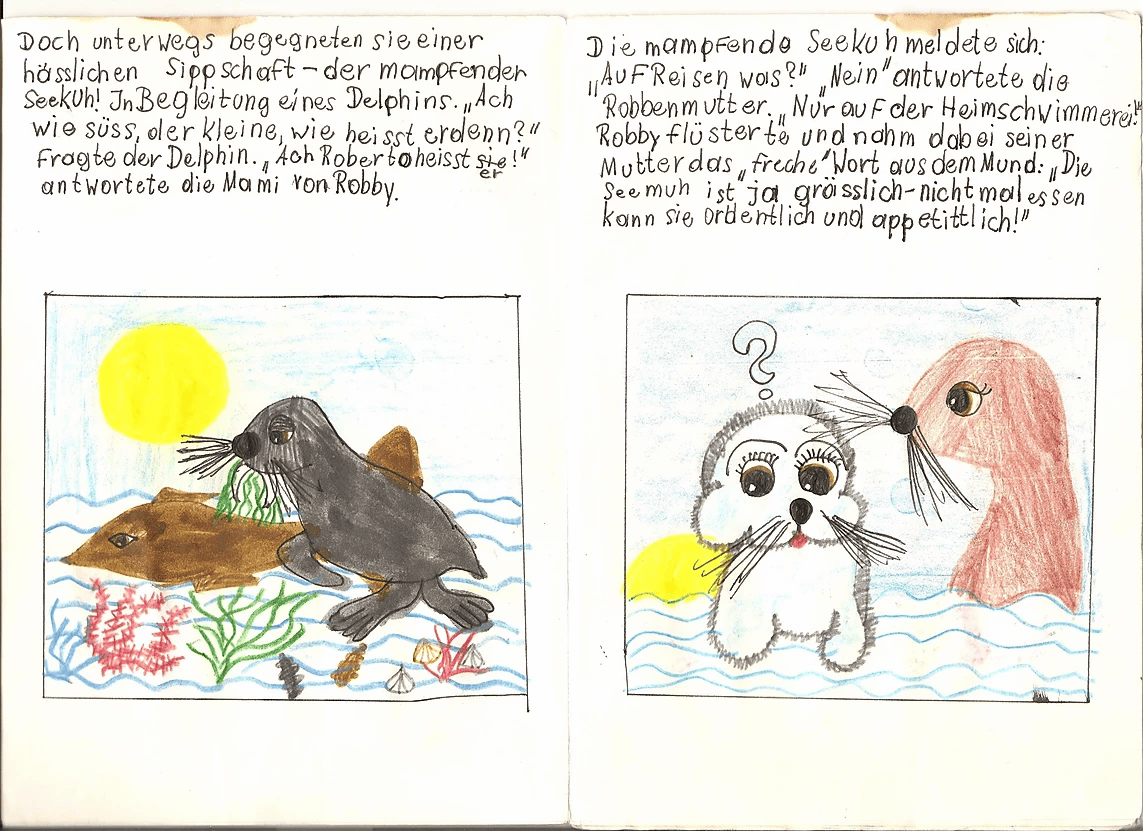 Doch unterwegs begegneten sie einer
hässlichen Sippschaft - der mampfender
Seekuh! In Begleitung eines Delphins. „Ach
wie süss, der kleine, wie heisst er denn?“
fragte der Delphin. „Ach Roberto heisst sie!“
er
antwortete die Mami von Robby.
Die mampfende Seekuh meldete sich:
„Auf Reisen was?“ „Nein“ antwortete die
Robbenmutter. „Nur auf der Heimschwimmerei!“
Robby flüsterte und nahm dabei seiner
Mutter das „freche“ Wort aus dem Mund: „Die
Seemuh ist ja grässlich - nicht mal essen
kann sie ordentlich und appetittlich!“
?